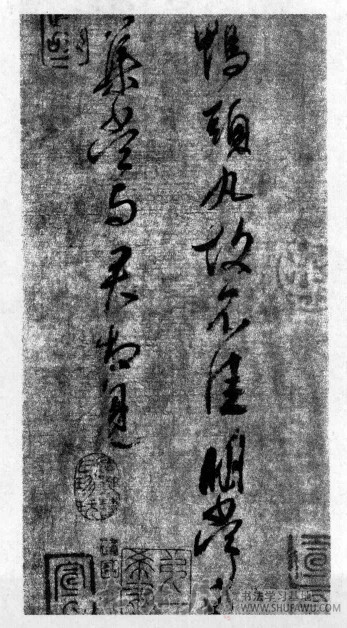 鴨頭丸故不佳明當必
集當與君相見
书法学习基地
WWW.SHUFAWU.COM